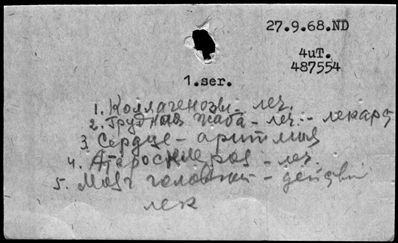 27.9.68.ND
4uT.
487554
1.ser.
1. Коллагенозы - леч.
2. Грудная жаба - леч. - лекарс
3 Сердце - аритмия
4. Атеросклероз - леч.
5. Мозг головной - действ
лек